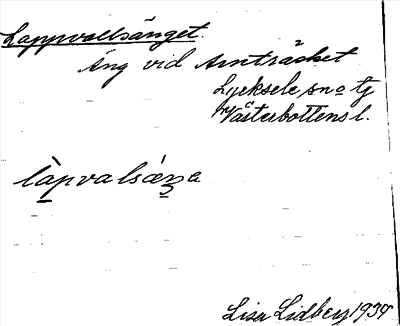 Lappvallsänget.
Äng vid Arnträsket
Lycksele sn o tg
Västerbottens l.
Lisa Lidberg 1939